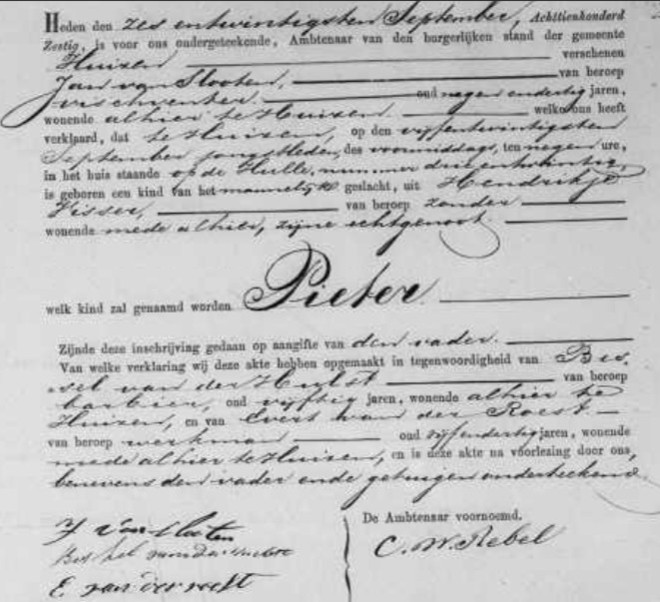 Heden den zes entwintigsten September, Achttienhonderd
Zestig, is voor ons ondergeteekende, Ambtenaar van den burgerlijken stand der gemeente
Huizen verschenen
Jan van Slooten, van beroep
vischventer oud negen endertig jaren,
wonende alhier te Huizen welke ons heeft
verklaard, dat te Huizen, op den vijfentwintigsten
September jongstleden, des voormiddags, ten negen ure,
in het huis staande op de Hulle, nummer drieentwintig,
is geboren een kind van het mannelijke geslacht, uit Hendrikje
Visser, van beroep zonder
wonende mede alhier, zijne echtgenoot.
welk kind zal genaamd worden Pieter
Zijnde deze inschrijving gedaan op aangifte van den vader.
Van welke verklaring wij deze akte hebben opgemaakt in tegenwoordigheid van Bes
sel van der Hulst van beroep
barbier, oud vijftig jaren, wonende alhier te
Huizen, en van Evert van der Roest.
van beroep werkman oud vijfendertig jaren, wonende
mede alhier te Huizen, en is deze akte na voorlezing door ons,
benevens den vader ende getuigen onderteekend.
De Ambtenaar voornoemd.
J van Slooten
Bessel van der
E van der roest
C. W. Rebel